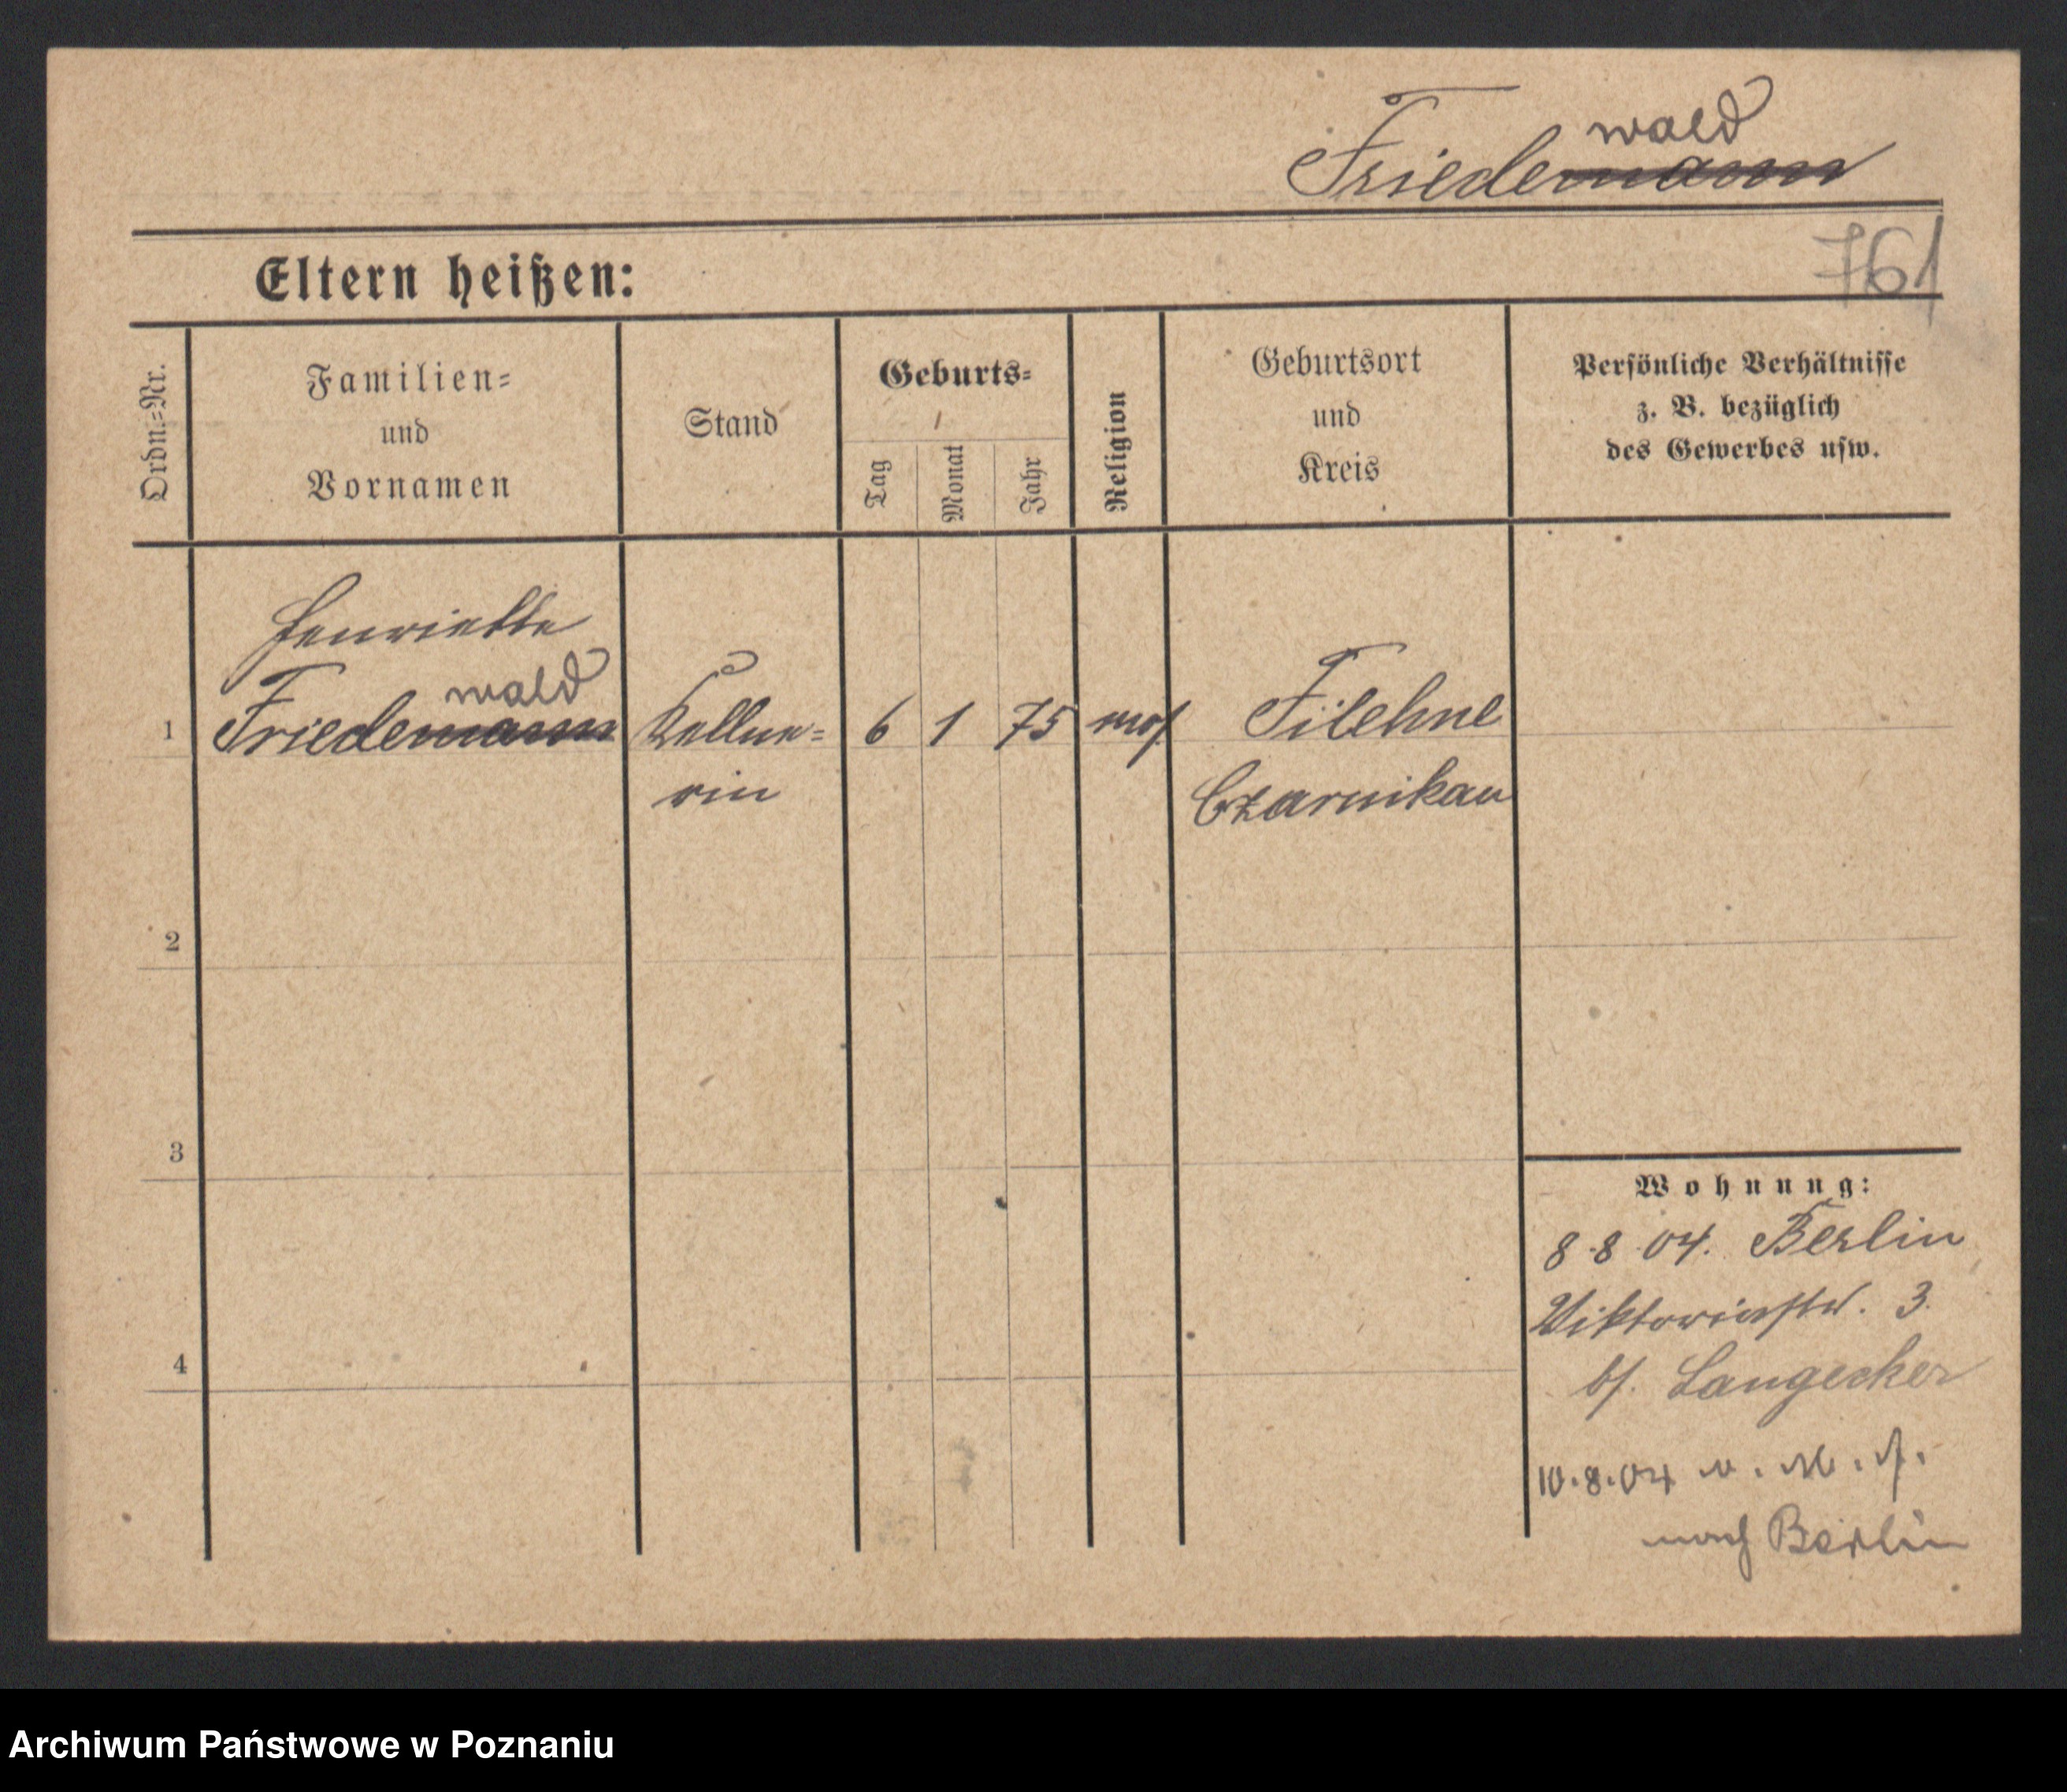 wald
Friedemann
761
Eltern heißen:
Ordn.=Nr.
Familien=
und
Vornamen
Stand
Geburts=
Tag
Monat
Jahr
Religion
Geburtsort
und
Kreis
Persönliche Verhältnisse
z. B. bezüglich
des Gewerbes usw.
Henriette
wald
1 Friedemann Kellne= 6 1 75 mos. Filehne
rin Czarnikau
2
3
4
Wohnung:
8.8.04. Berlin
Viktoriastr. 3.
b/. Langecker
10.8.04 v. M. A.
nach Berlin
Archiwum Państwowe w Poznaniu